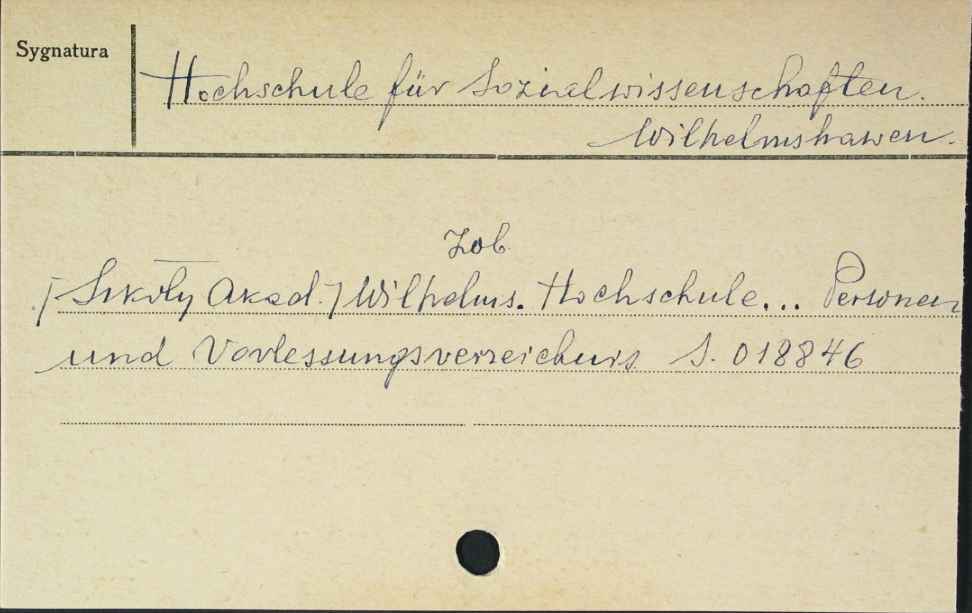 Sygnatura
Hochschule für Sozialwissenschaften.
Wilhelmshawen.
Zob
[Szkoły Akad.] Wilhelms. Hochschule... Personen
und Vorlessungsverzeichnis S. 018846